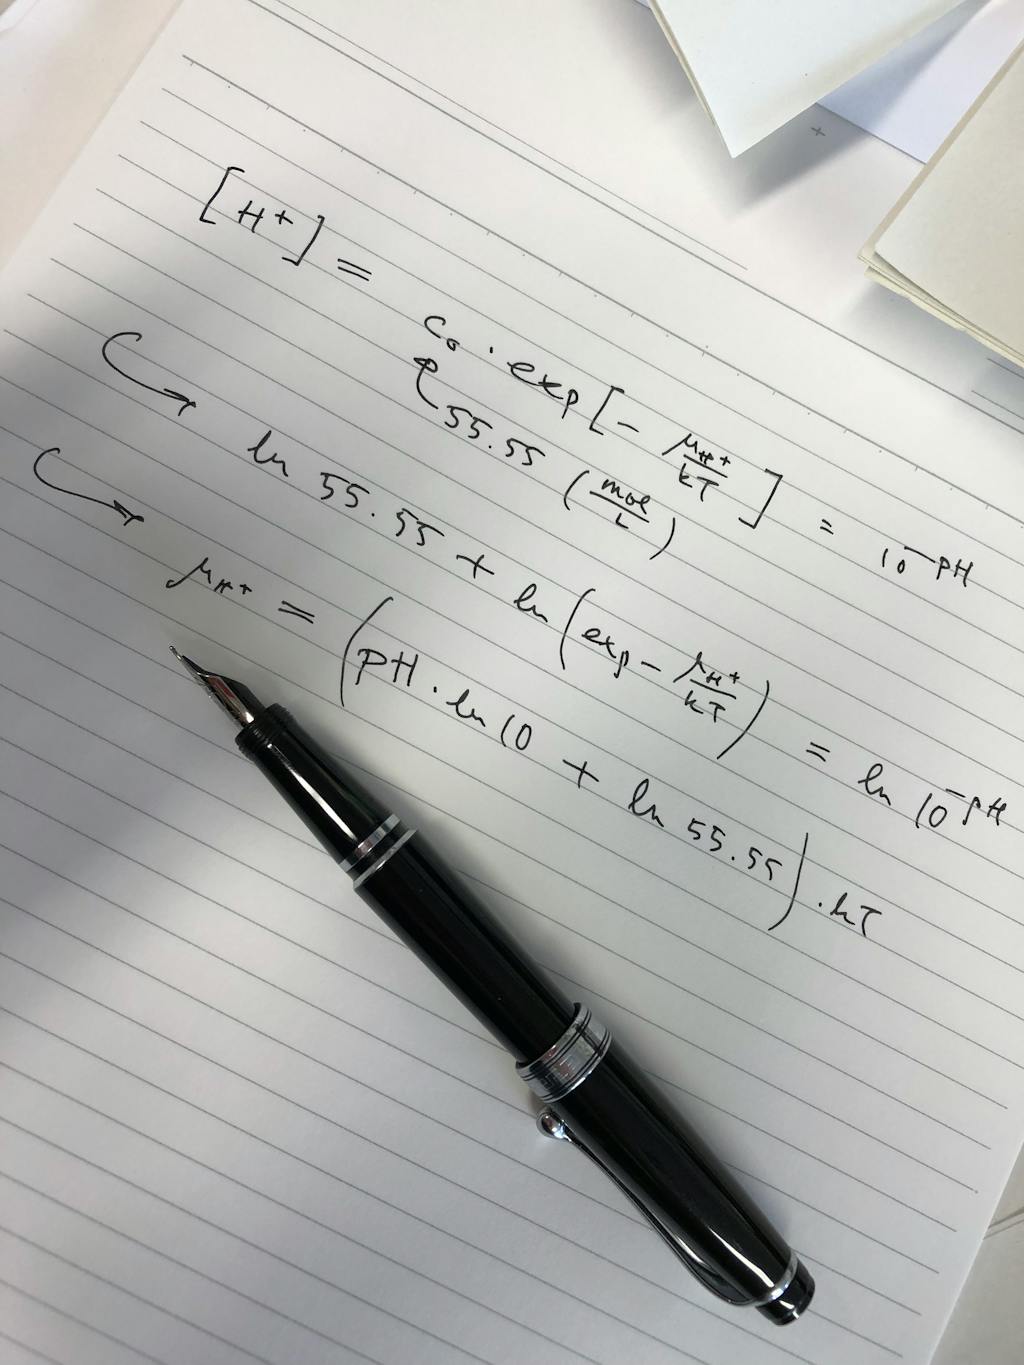 [H⁺] = c₀ · exp[− μH⁺/kT] = 10^−PH
55.55 (mol/L)
ln 55.55 + ln(exp − μH⁺/kT) = ln 10^−PH
μH⁺ = (PH · ln 10 + ln 55.55) · kT